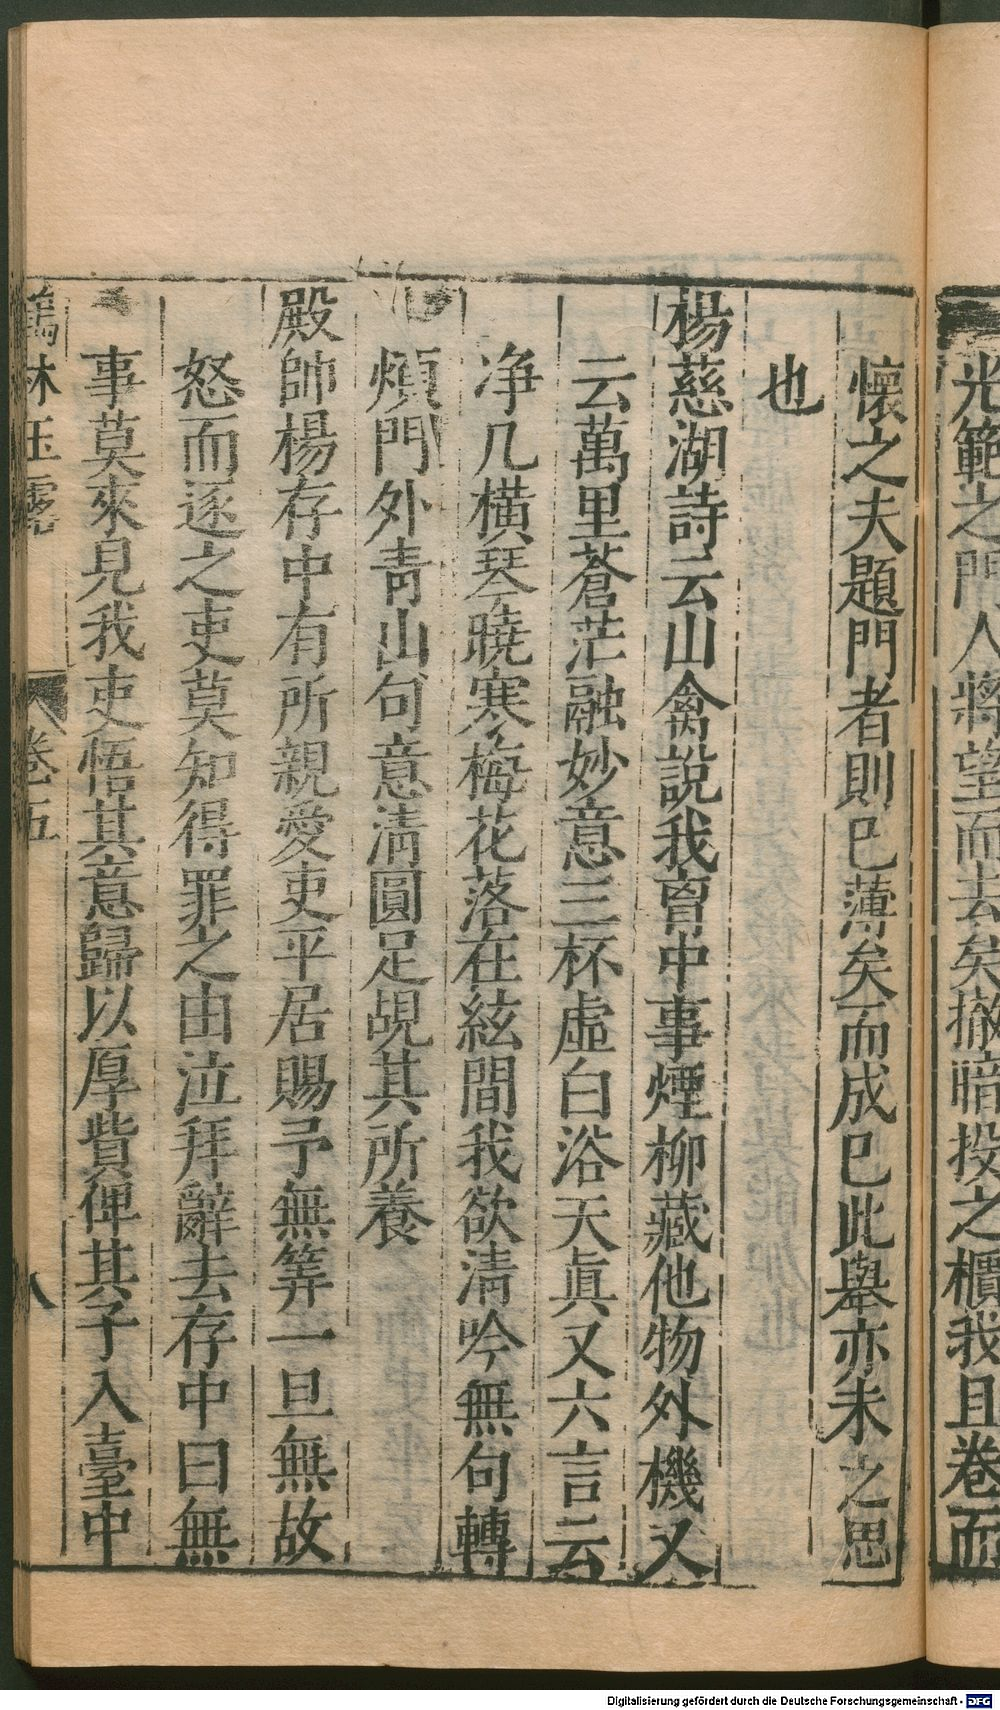 光範之門人將望而去矣撤暗投之櫃我且卷而
懷之夫題門者則已薄矣而成已此舉亦未之思
也
楊慈湖詩云山禽說我胷中事煙柳藏他物外機又
云萬里蒼茫融妙意三杯虛白浴天眞又六言云
净几橫琴曉寒梅花落在絃間我欲清吟無句轉
煩門外靑山句意清圓足覘其所養
殿帥楊存中有所親愛吏平居賜予無筭一旦無故
怒而逐之吏莫知得罪之由泣拜辭去存中曰無
事莫來見我吏悟其意歸以厚貲俾其子入臺中
鶴林玉露 卷五 八
Digitalisierung gefördert durch die Deutsche Forschungsgemeinschaft - DFG